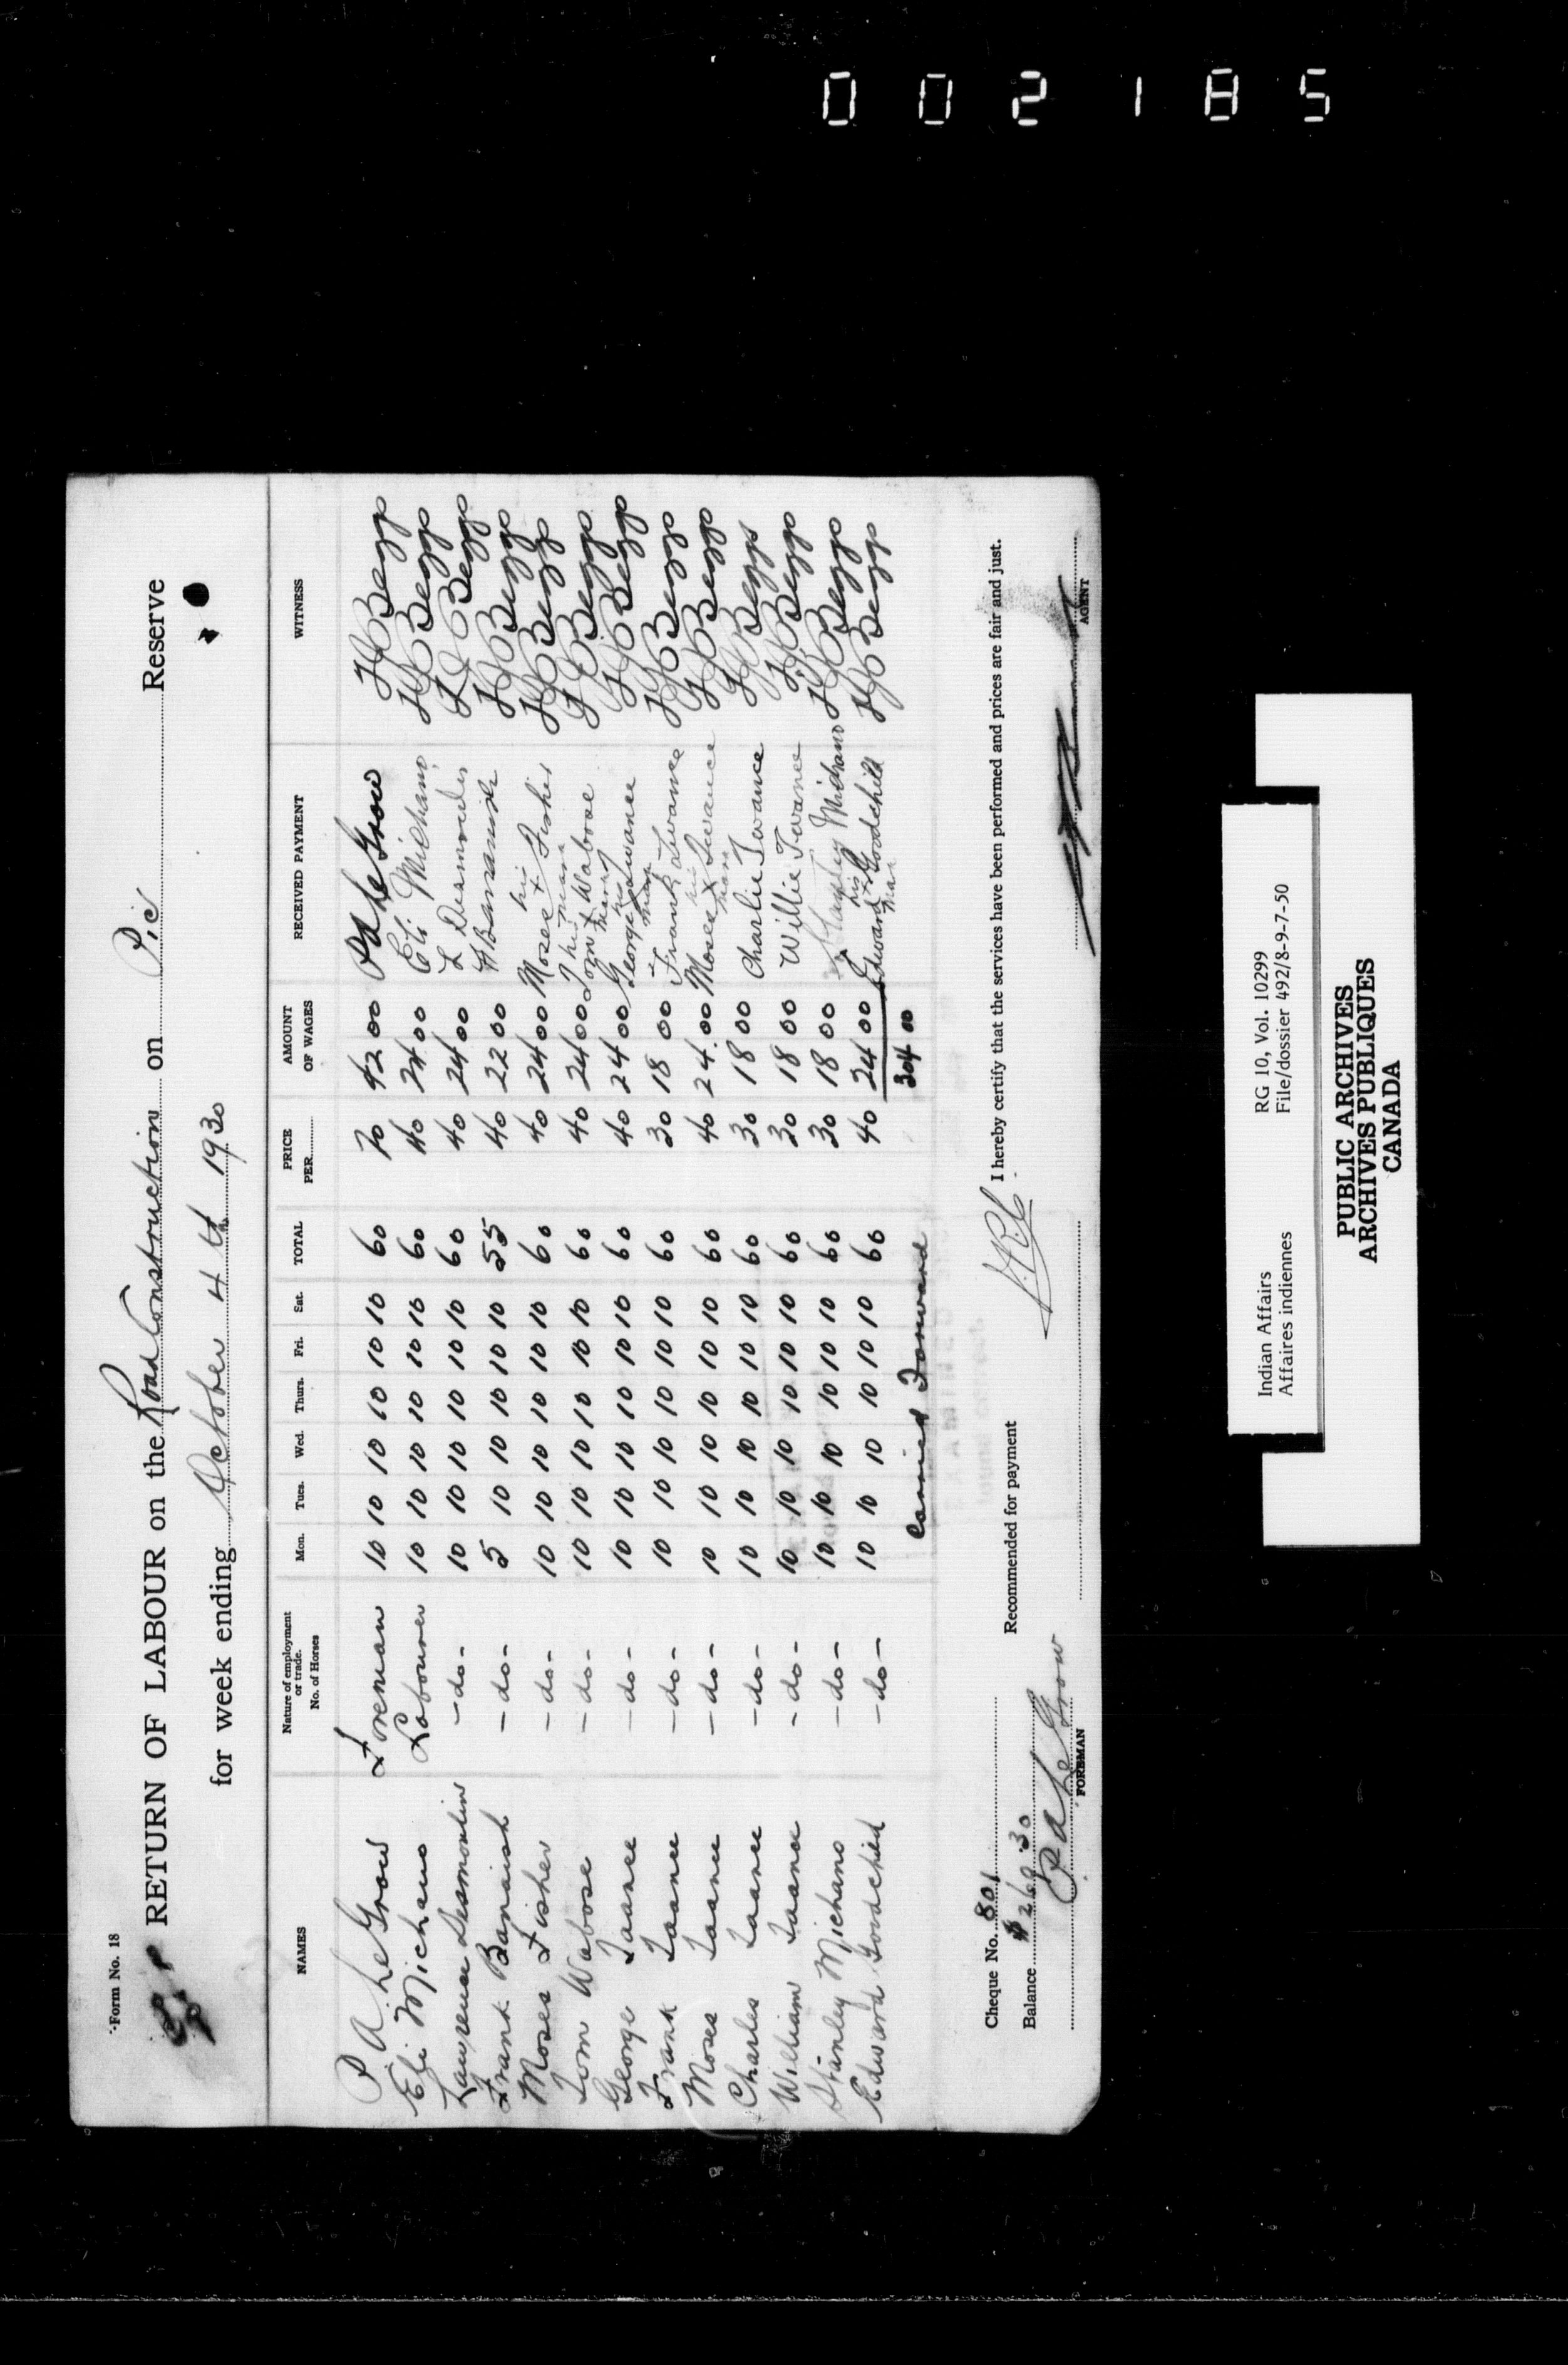 002185
Form No. 18
RETURN OF LABOUR on the Road Construction on Pic Reserve
for week ending October 4th 1930
NAMES Nature of employment or trade. No. of Horses Mon. Tues. Wed. Thurs. Fri. Sat. TOTAL PRICE PER AMOUNT OF WAGES RECEIVED PAYMENT WITNESS
P A LeGrow Foreman 10 10 10 10 10 10 60 70 42 00 P A LeGrow Beggs
Eli Michano Labourer 10 10 10 10 10 10 60 40 24 00 Eli Michano Beggs
Lawrence Desmoulin -do- 10 10 10 10 10 10 60 40 24 00 L Beggs
Frank Banaish -do- 5 10 10 10 10 10 55 40 22 00 Beggs
Moses Fisher -do- 10 10 10 10 10 10 60 40 24 00 Moses his x mark Fisher Beggs
Tom Wabose -do- 10 10 10 10 10 10 60 40 24 00 Tom his x mark Wabose Beggs
George Twanee -do- 10 10 10 10 10 10 60 40 24 00 George his x mark Twance Beggs
Frank Twanee -do- 10 10 10 10 10 10 60 30 18 00 Frank Twance Beggs
Moses Twanee -do- 10 10 10 10 10 10 60 40 24 00 Moses his x mark Twance Beggs
Charles Twanee -do- 10 10 10 10 10 10 60 30 18 00 Charlie Twance Beggs
William Twanee -do- 10 10 10 10 10 10 60 30 18 00 Willie Twance Beggs
Stanley Michano -do- 10 10 10 10 10 10 60 30 18 00 Stanley Michano Beggs
Edward Goodchild -do- 10 10 10 10 10 10 60 40 24 00 Edward his x mark Goodchild Beggs
Carried Forward 304 00
Cheque No. 801 Recommended for payment I hereby certify that the services have been performed and prices are fair and just.
Balance
P A LeGrow
FOREMAN AGENT
Indian Affairs RG 10, Vol. 10299
Affaires indiennes File/dossier 492/8-9-7-50
PUBLIC ARCHIVES
ARCHIVES PUBLIQUES
CANADA